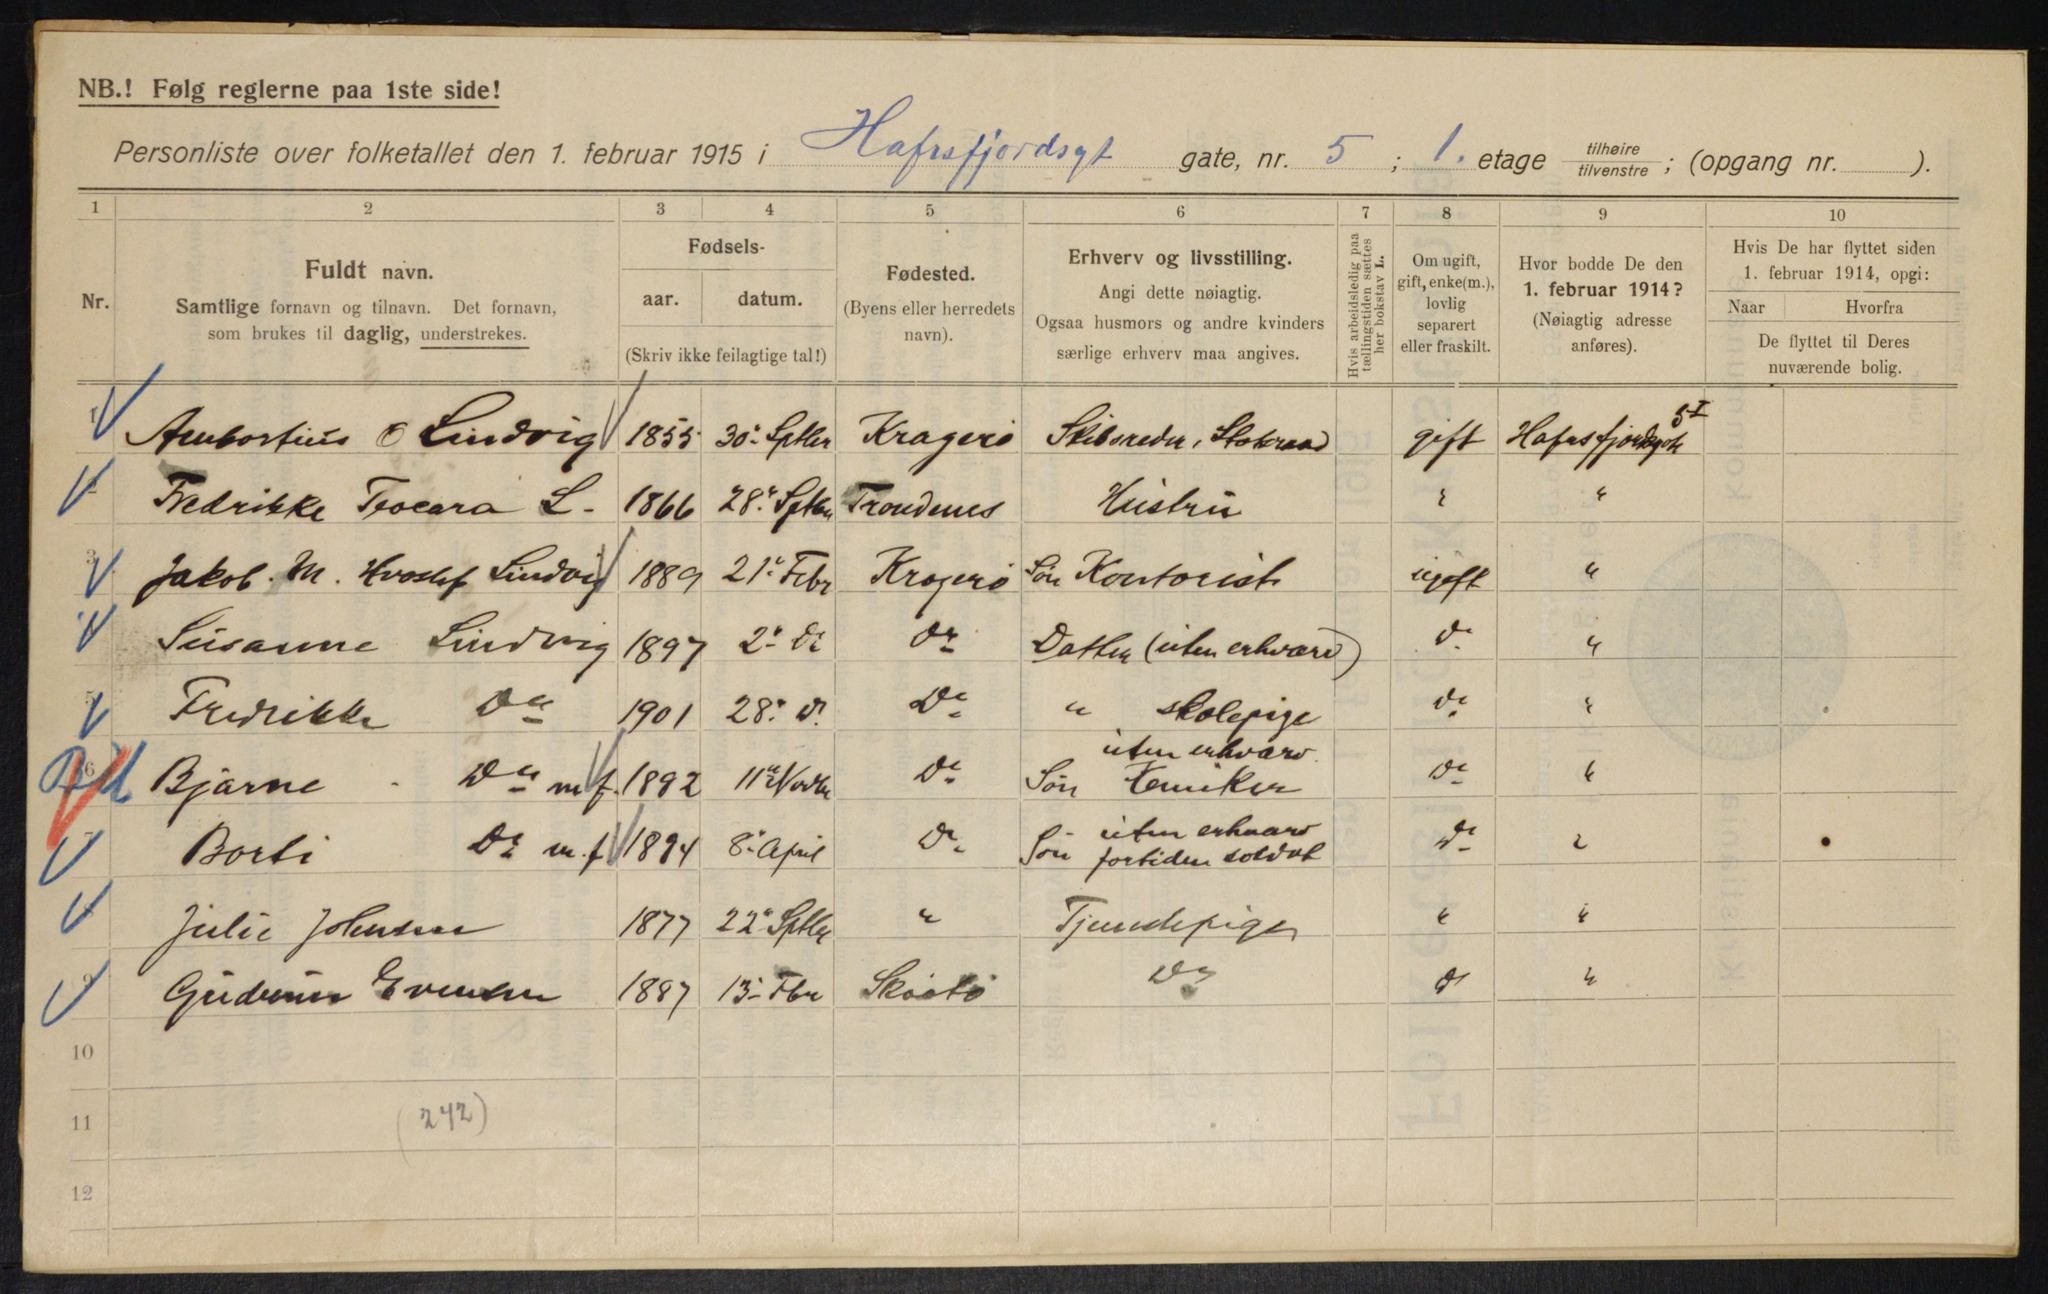 NB.! Følg reglerne paa 1ste side!
Personliste over folketallet den 1. februar 1915 i Hafrsfjordsgt gate, nr. 5 ; 1. etage tilhøire tilvenstre ; (opgang nr. ).
1 2 3 4 5 6 7 8 9 10
Nr.
Fuldt navn.
Samtlige fornavn og tilnavn. Det fornavn,
som brukes til daglig, understrekes.
Fødsels-
aar. datum.
(Skriv ikke feilagtige tal!)
Fødested.
(Byens eller herredets
navn).
Erhverv og livsstilling.
Angi dette nøiagtig.
Ogsaa husmors og andre kvinders
særlige erhverv maa angives.
Hvis arbeidsledig paa
tællingstiden sættes
her bokstav L.
Om ugift,
gift, enke(m.),
lovlig
separert
eller fraskilt.
Hvor bodde De den
1. februar 1914?
(Nøiagtig adresse
anføres).
Hvis De har flyttet siden
1. februar 1914, opgi:
Naar Hvorfra
De flyttet til Deres
nuværende bolig.
1 O Lindvig 1855 30' Sptbr Kragerø Skibsreder, Statsraad gift Hafrsfjordsgt 5 I
2 Fredrikke L. 1866 28' Sptbr Trondenes Hustru " "
3 Jakob. M. Hvoslef Lindvig 1889 21' Febr Kragerø Søn Kontorist ugift "
4 Susanne Lindvig 1897 2' do do Datter (uten erhverv) do "
5 Fredrikke do 1901 28' do do " skolepige do "
uten erhverv
6 Bjarne do m.f. 1892 11' Novbr do Søn Kemiker do "
uten erhverv
7 do m.f. 1894 8' April do Søn fortiden soldat do "
8 Julie Johnsen 1877 22' Sptbr " Tjenestepige " "
9 Gudrun Evensen 1887 13' Fbr Skåtø do do "
10
11 (242)
12